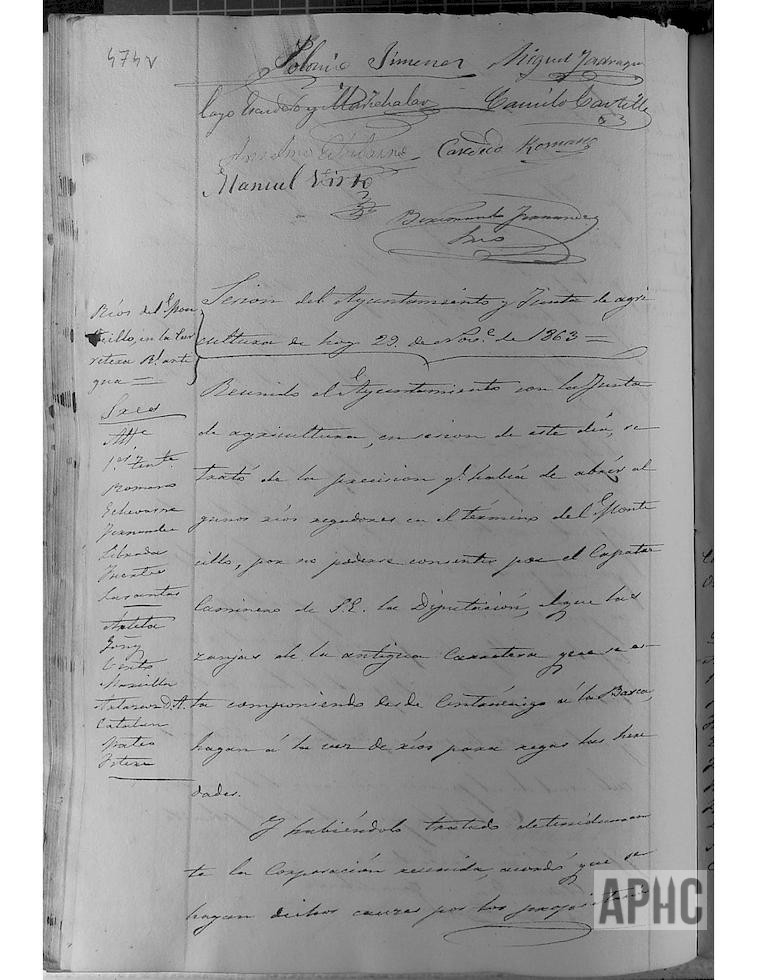 474v
Polonio Jimenez Miguel Jadraque
Cayo Escudero y Marichalar Camilo Castilla
Anselmo Casildo Romano
Manuel Virto
Bermundo Fernandez
Srio
Ríos del Mon
cillo, en la Car
retera Rl. anti
gua =
Sres
Alle
1er. y 2º tente.
Romano
Echevarria
Fernandez
Librada
Fuentes
Goñi
Virto
Mancilla
Salazar D. A.
Catalan
Mateo
Sesion del Ayuntamiento y Junta de agri
cultura de hoy 29 de Nove. de 1863 =
Reunido el Ayuntamiento con la Junta
de agricultura, en sesion de este día, se
trató de la precision q. había de abrir al
gunos ríos regadores en el término del Monte
cillo, por no poderse consentir por el Capataz
Caminero de S.E. la Diputación, el que las
zanjas de la antigua Carretera que se es
ta componiendo desde Centénigo á la Barca,
hagan á la vez de ríos para regar las here
dades.
Y habiéndolo tratado detenidamen
te la Corporación reunida, acordó que se
hagan dichos cauces por los propietarios
APHC